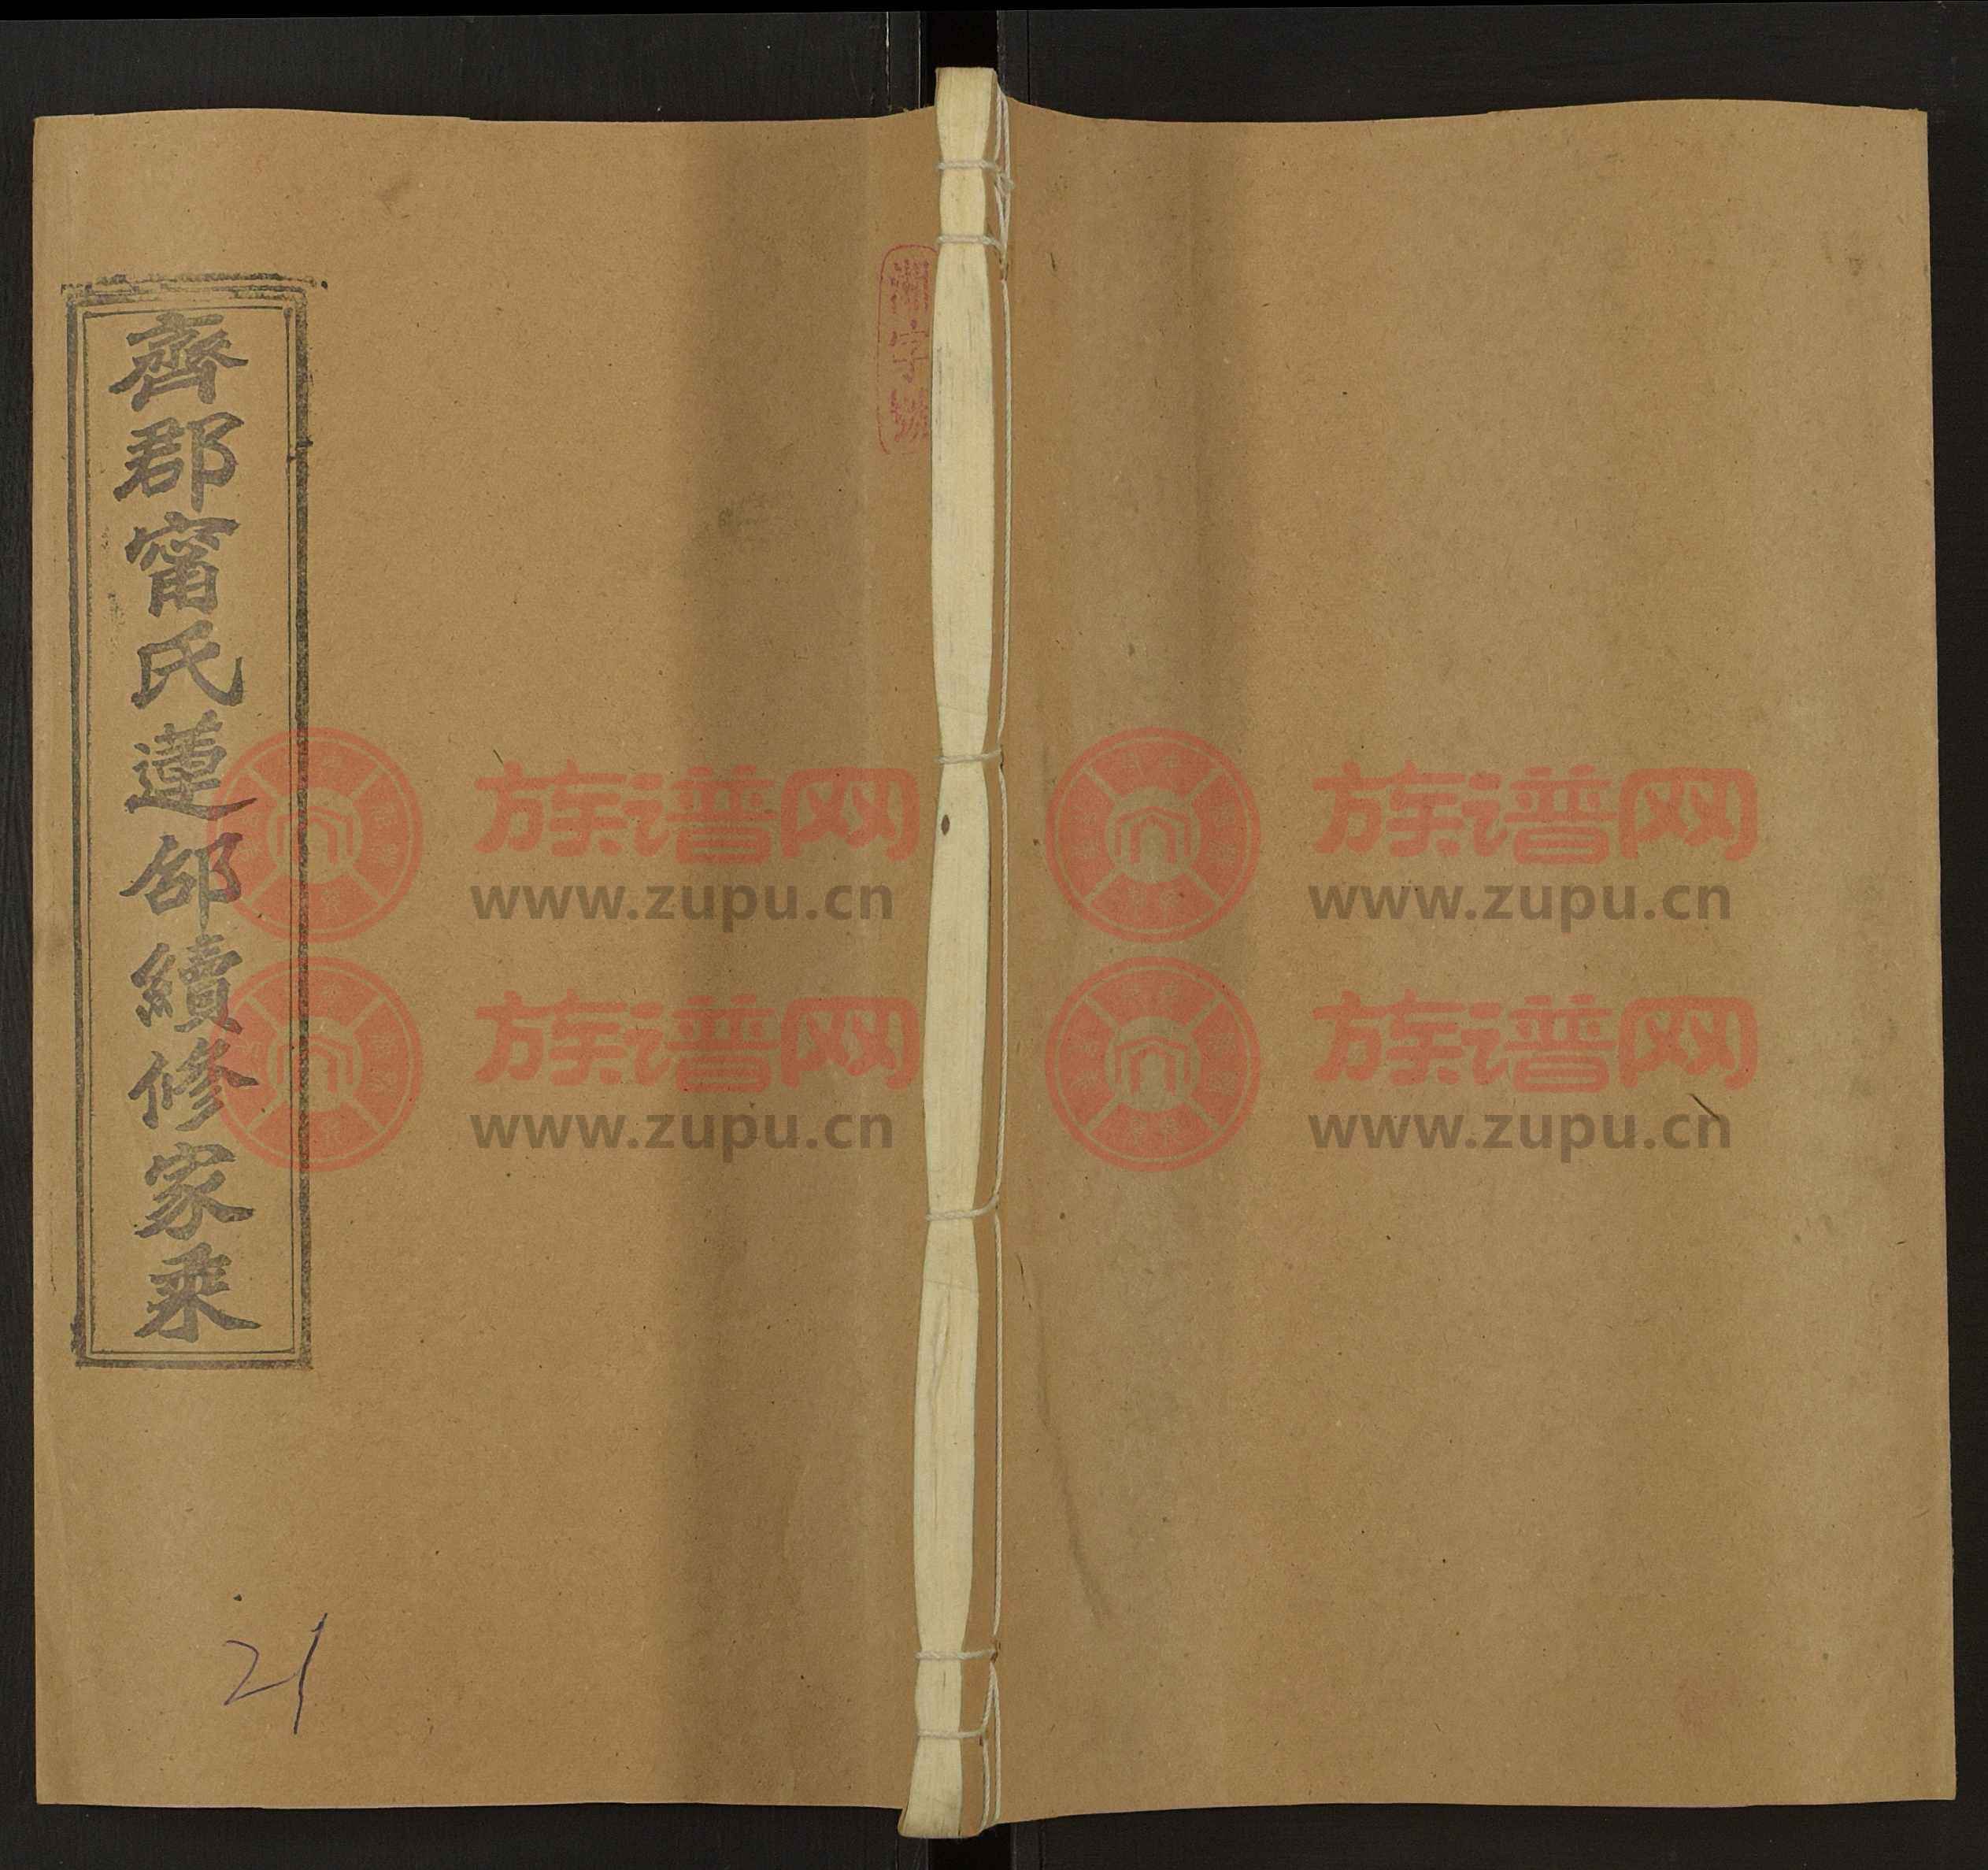 齊郡甯氏蓮郃續修家乘
21
字號
族谱网
www.zupu.cn
族谱网
www.zupu.cn
族谱网
www.zupu.cn
族谱网
www.zupu.cn